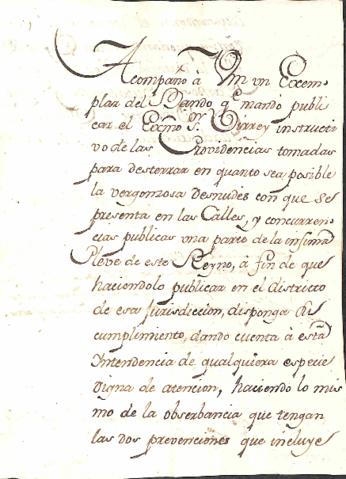 Acompaño à Vm un Exem-
plar del Bando qe. mandó publi
car el Exmo. Sor. Virrey instructi
vo de las Providencias tomadas
para desterrar en quanto sea posible
la vergonzosa desnudes con que se
presenta en las Calles, y concurren-
cias publicas una parte de la infima
Pleve de este Reyno, à fin de que
haciendolo publicar en el districto
de esa Jurisdiccion, disponga su
cumplimiento, dando cuenta à esta
Intendencia de qualquiera especie
digna de atencion, haciendo lo mis
mo de la obserbancia que tengan
las dos prevenciones que incluye